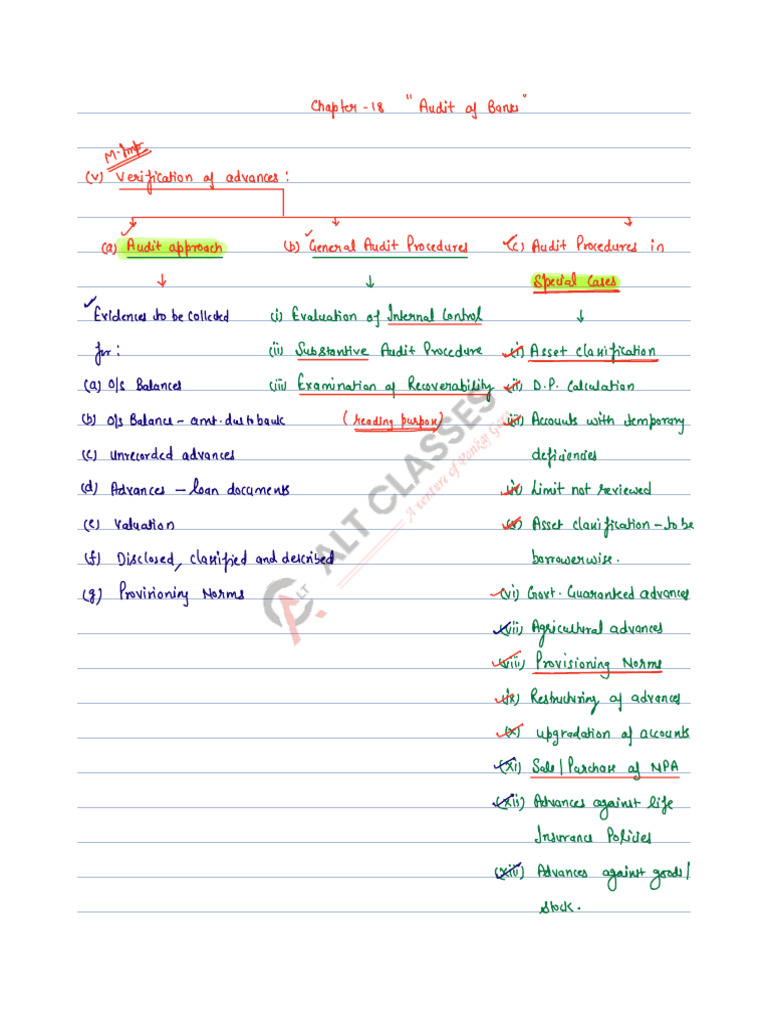 Chapter-18 "Audit of Banks"
M. Imp
(v) Verification of advances :
(a) Audit approach
(b) General Audit Procedures
(c) Audit Procedures in
Special Cases
Evidences to be collected
for :
(a) O/s Balances
(b) O/s Balance - amt. due to bank
(c) Unrecorded advances
(d) Advances - loan documents
(e) Valuation
(f) Disclosed, classified and described
(g) Provisioning Norms
(i) Evaluation of Internal Control
(ii) Substantive Audit Procedure
(iii) Examination of Recoverability
(reading purpose)
(i) Asset classification
(ii) D.P. Calculation
(iii) Accounts with temporary
deficiencies
(iv) Limit not reviewed
(v) Asset classification - to be
borrowerwise.
(vi) Govt. Guaranteed advances
(vii) Agricultural advances
(viii) Provisioning Norms
(ix) Restructuring of advances
(x) Upgradation of accounts
(xi) Sale/Purchase of NPA
(xii) Advances against life
Insurance Policies
(xiii) Advances against goods/
stock.
ALT CLASSES
A venture of Pankaj Garg
ALT